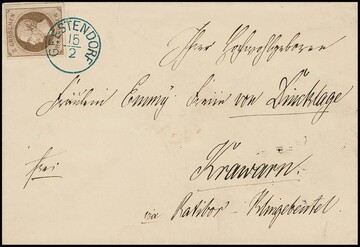 3 GROSCHEN
GEESTENDORF
15
2
Ihro Hochwohlgeboren
Fräulein Emmy Freiin von Dincklage
frei
Krawarn.
via Ratibor - Klingebeutel